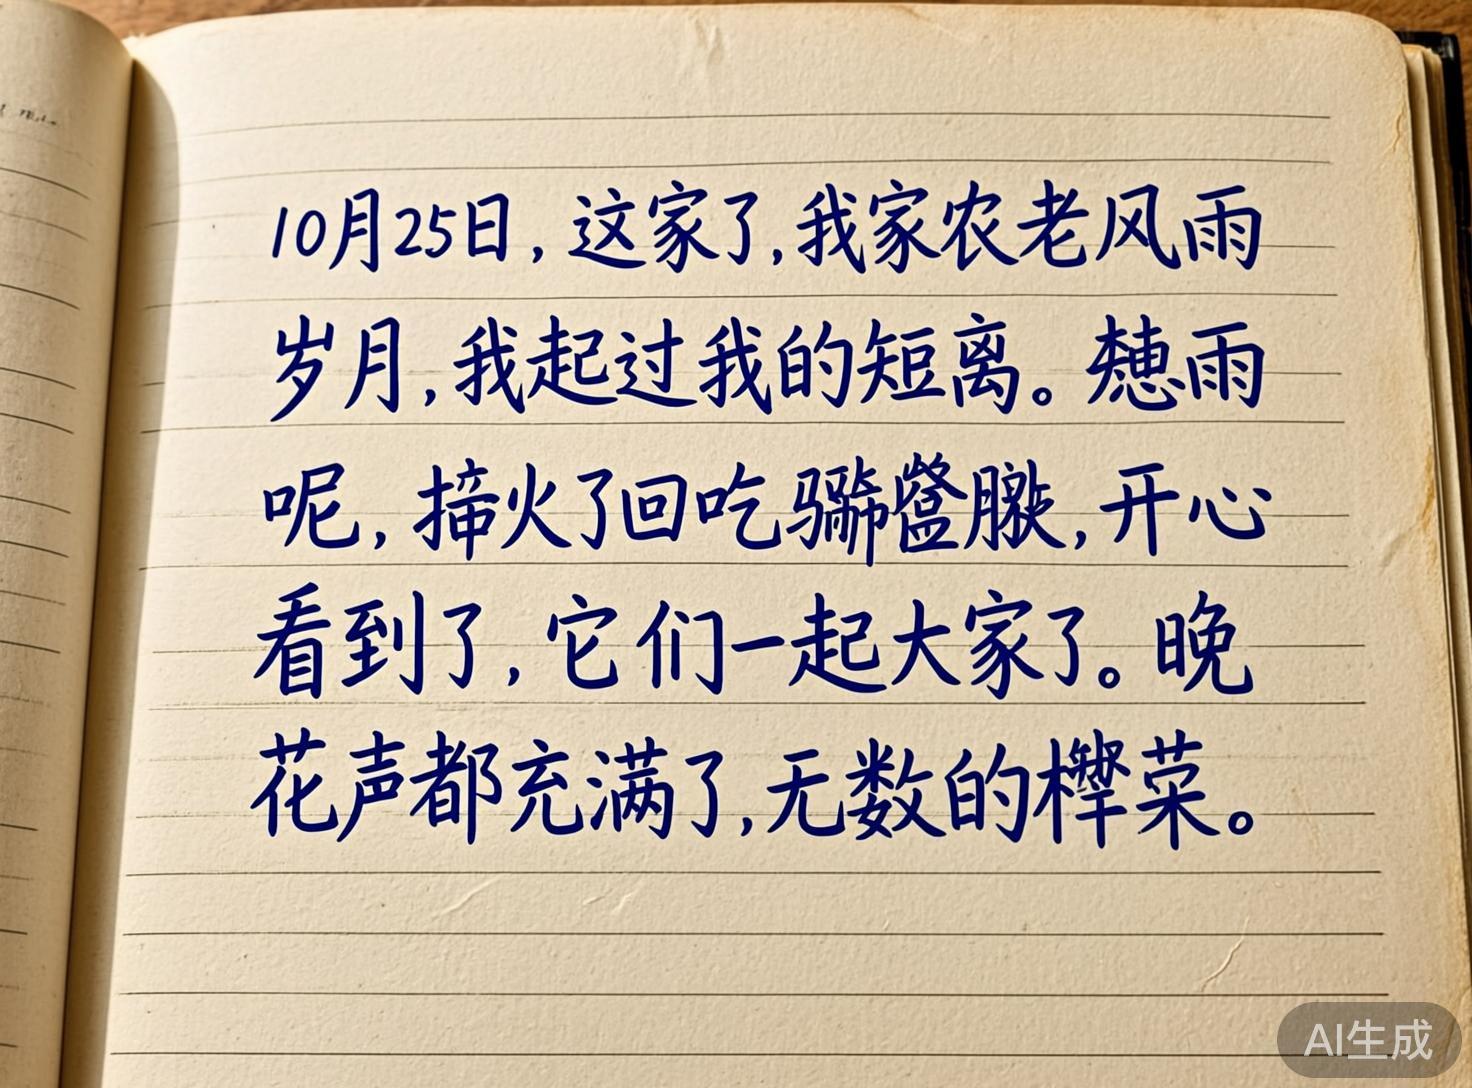 10月25日,这家了,我家农老风雨
岁月,我起过我的短离。雨
呢,火了回吃,开心
看到了,它们一起大家了。晚
花声都充满了,无数的菜。
AI生成